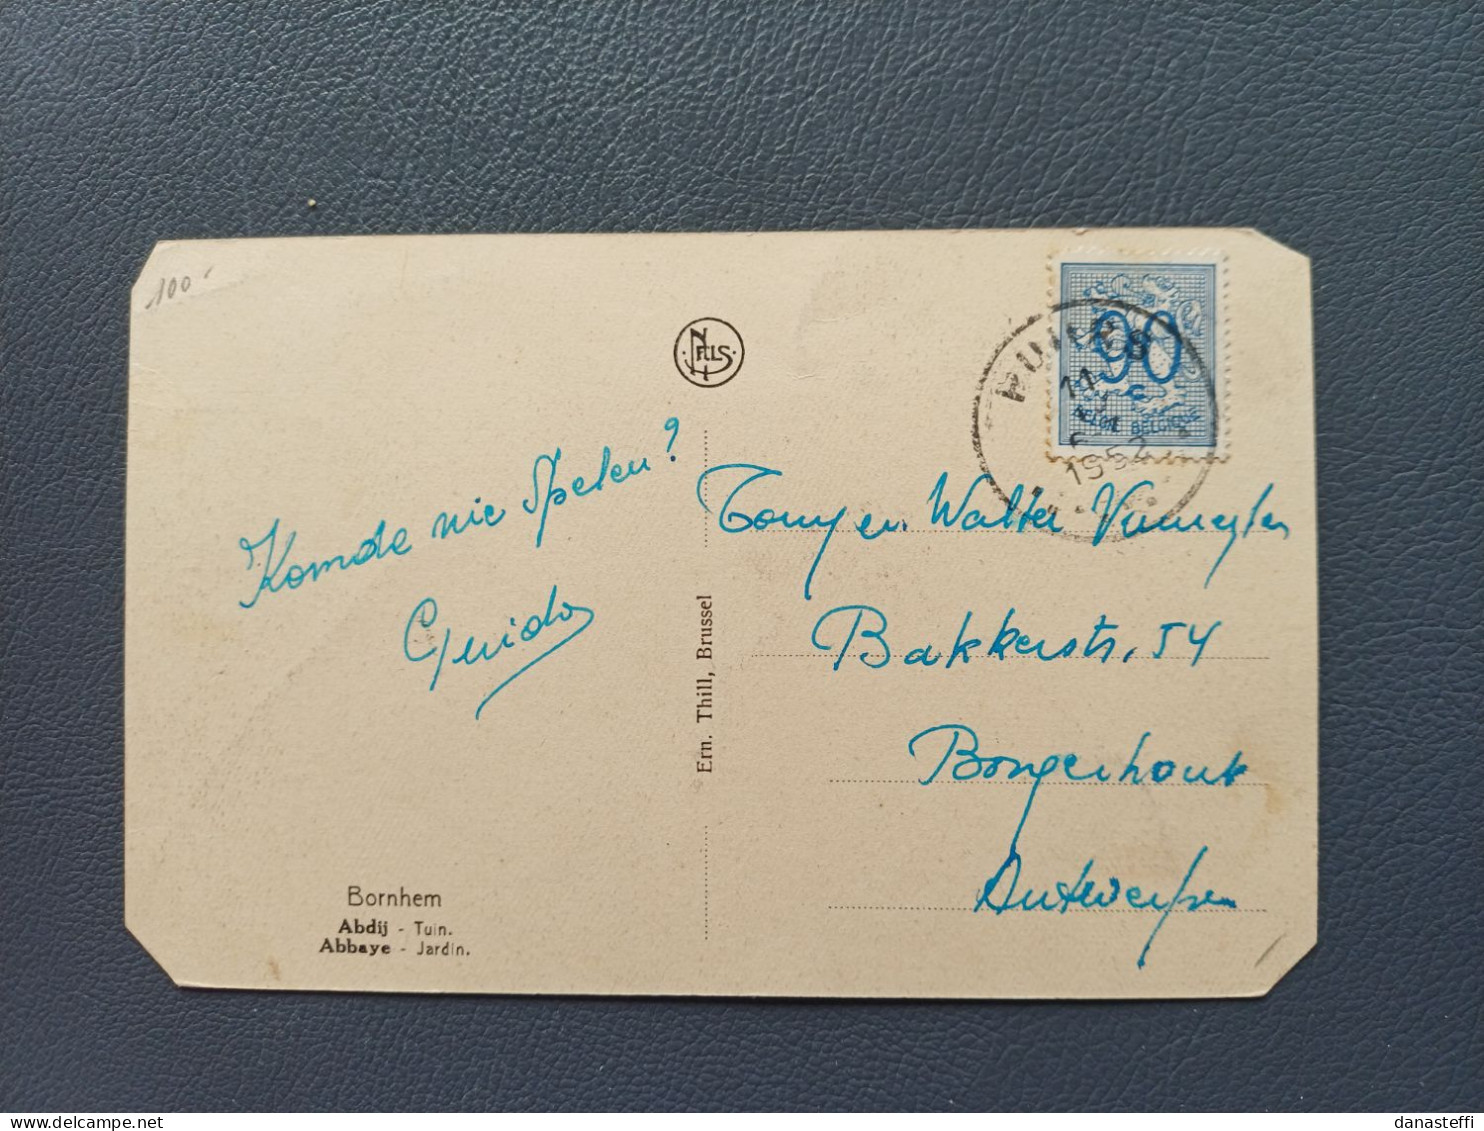 100
NELS
PUURS
90
BELGIE BELGIQUE
1952
Komde nie Spelen?
Guido
Tony en Walter
Bakkerstr. 54
Borgerhout
Antwerpen
Ern. Thill, Brussel
Bornhem
Abdij - Tuin.
Abbaye - Jardin.
delcampe.net
danasteffi